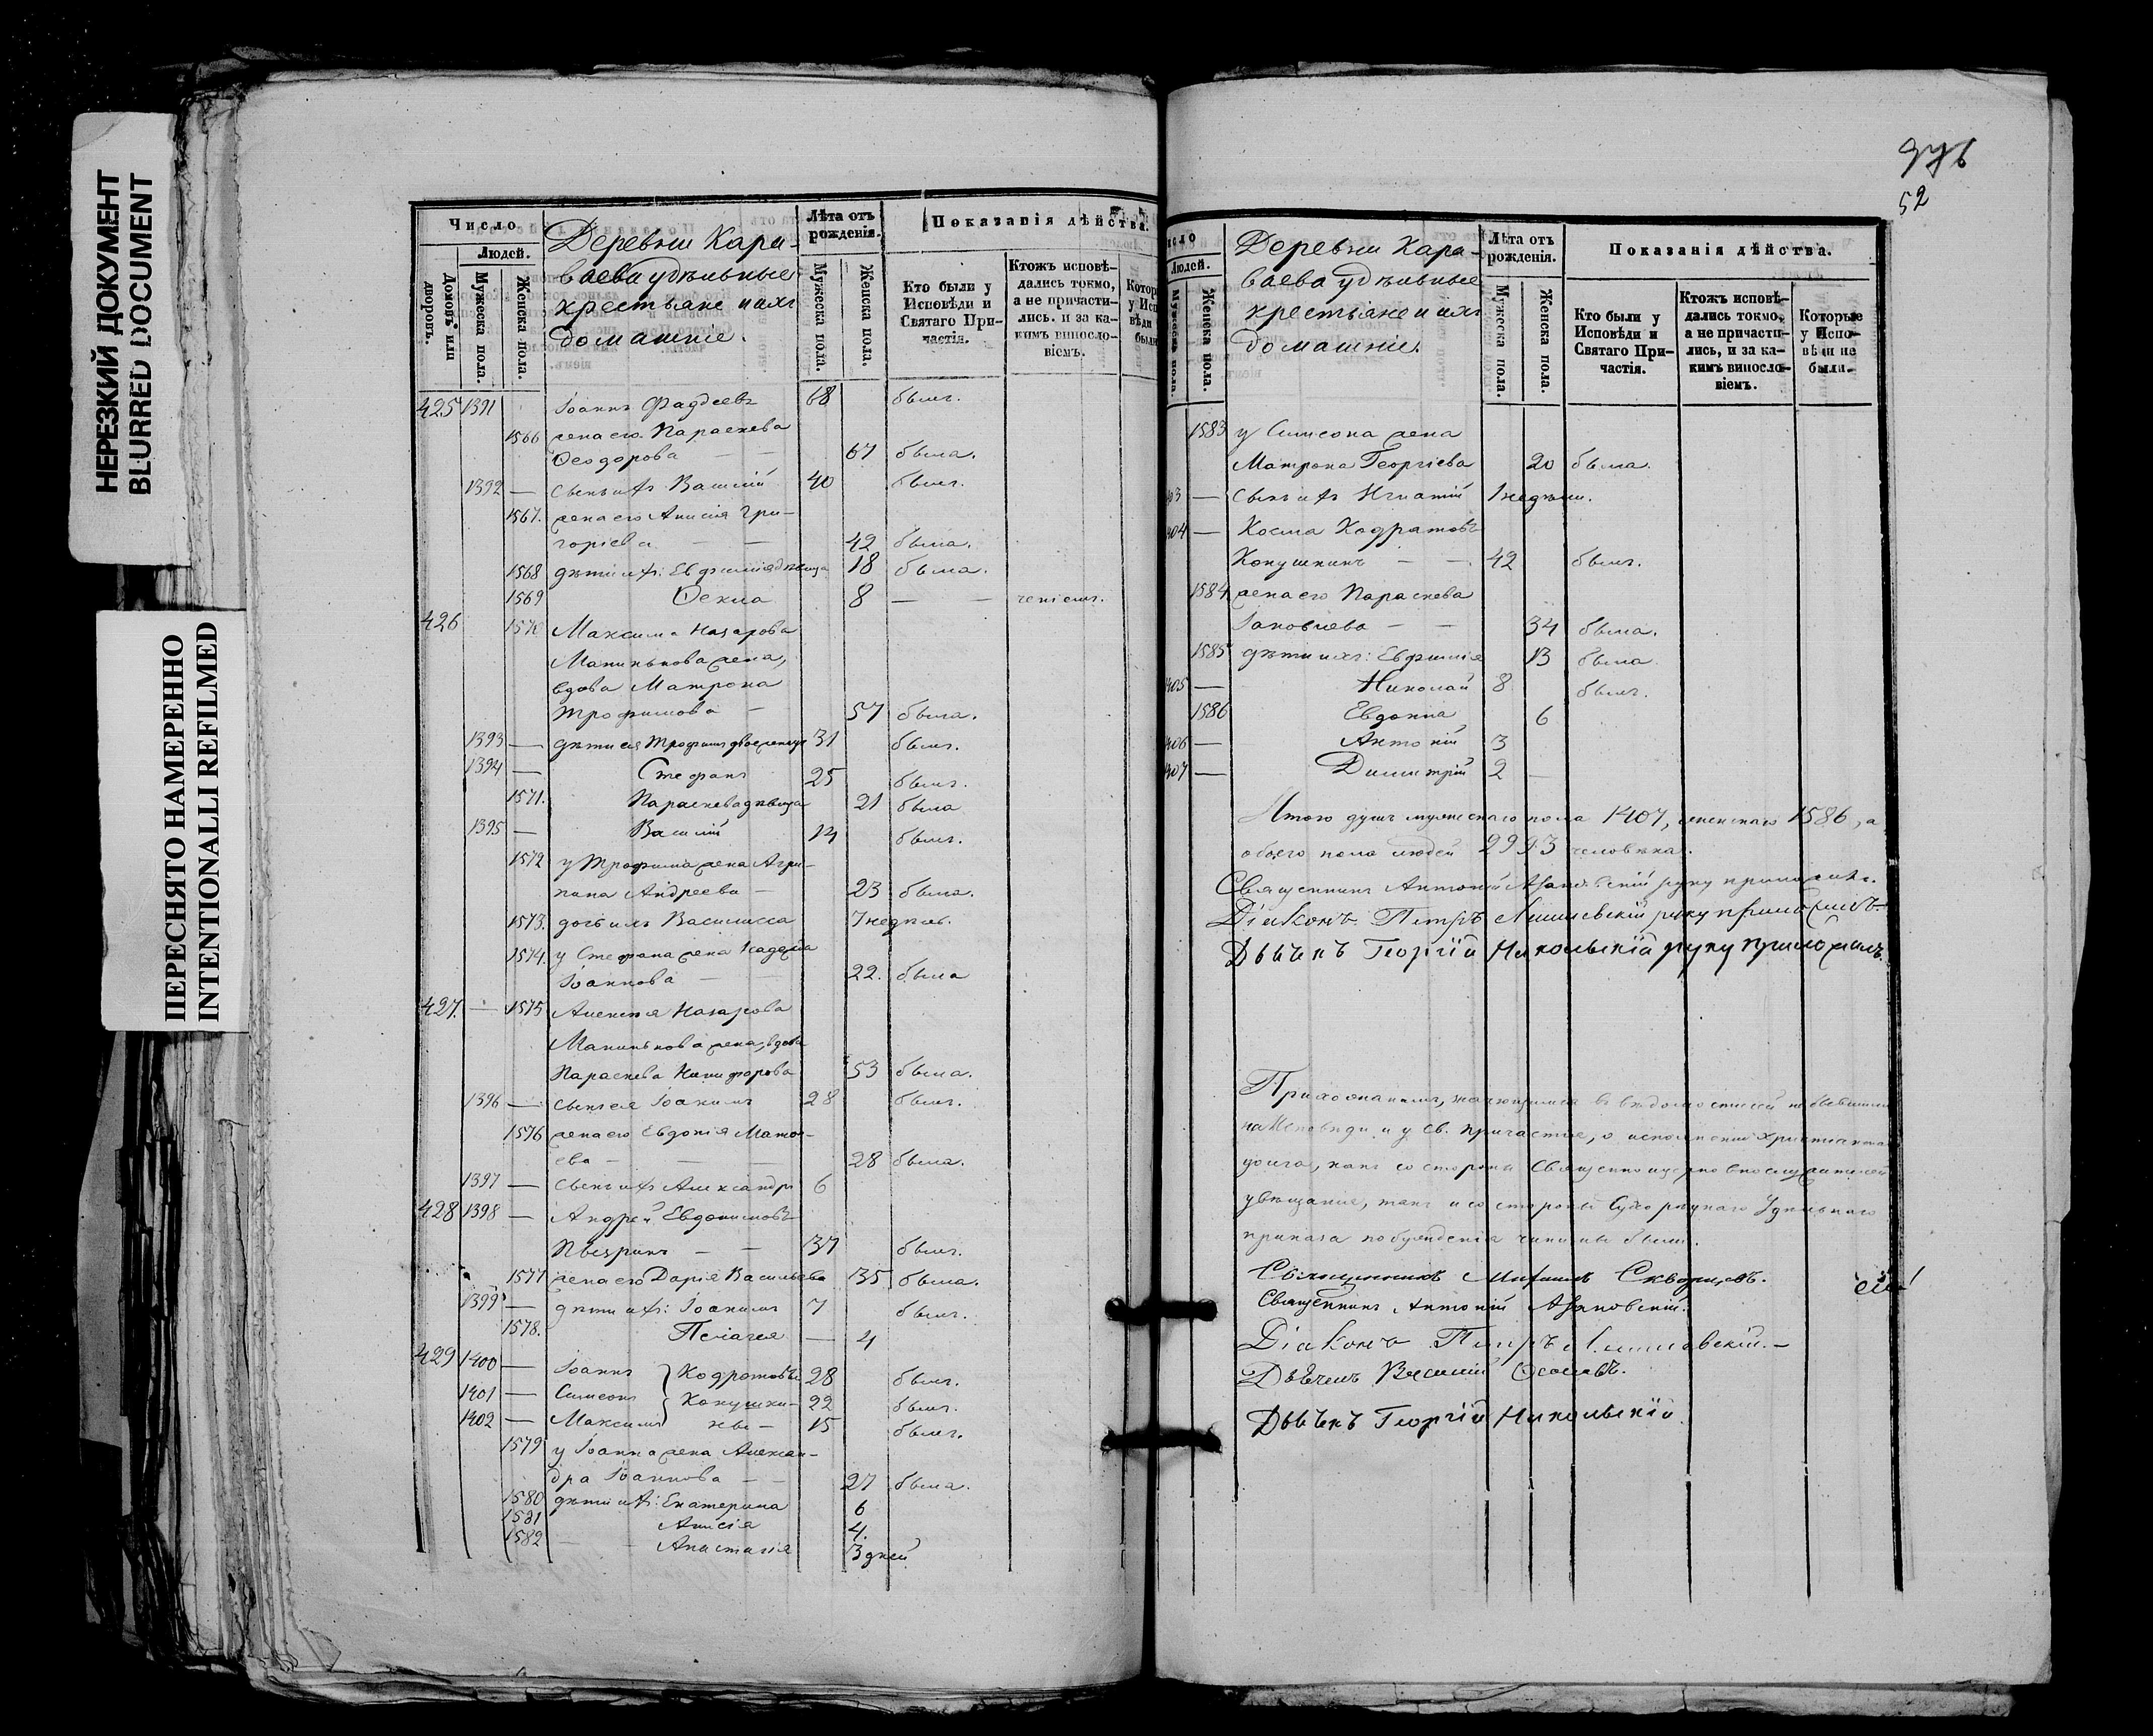 НЕРЕЗКИЙ ДОКУМЕНТ
BLURRED DOCUMENT
ПЕРЕСНЯТО НАМЕРЕННО
INTENTIONALLI REFILMED
Число
Людей.
Домовъ или дворовъ.
Мужеска пола.
Женска пола.
Деревни Кара-
ваева удѣльные
крестьяне и ихъ
домашніе.
Лѣта отъ рожденія.
Мужеска пола.
Женска пола.
Показанія дѣйства.
Кто были у Исповѣди и Святаго При-частія.
Ктожъ исповѣ-дались токмо, а не причасти-лись. и за ка-кимъ винослo-віемъ.
425 1391 Іоаннъ Фаддеевъ 68 былъ.
1566 жена его Параскева
Ѳеодорова — — 67 была.
1392 — сынъ ихъ Василій 40 былъ.
1567. жена его Анисія Гри-
горіева — — 42 была.
1568 дѣти ихъ: Евфимія дѣвица 18 была.
1569 Ѳекла 8 — —
426 1570 Максима Назарова
жена,
вдова Матрона
Трофимова — 57 была.
1393 — дѣти ея Трофимъ 31 былъ.
1394 — Стефанъ 25 былъ.
1571. Параскева дѣвица 21 была
1395 — Василій 14 былъ.
1572 у Трофима жена Агри-
пина Андреева — 23 была.
1573. дочь ихъ Василисса 7 недѣль.
1574. у Стефана жена
Іоаннова — — 22. была
427. — 1575 Алексѣя Назарова
жена, вдова
Параскева Никифорова 53 была.
1396 — сынъ ея Іоакимъ 28 былъ.
1576 жена его Евдокія Матѳ-
ева — — — 28 была.
1397 — сынъ ихъ Александръ 6
428 1398 — Андрей Евдокимовъ
— — 37 былъ.
1577 жена его Дарія Васильева 35 была.
1399 — дѣти ихъ: Іоакимъ 7 былъ.
1578. Пелагея — 4
429 1400 — Іоаннъ Кодратовы 28 былъ.
1401 — Симеонъ Кокушки- 22 былъ.
1402 — Максимъ ны — 15 былъ.
1579 у Іоанна жена Алексан-
дра Іоаннова — — 27 была.
1580 дѣти ихъ: Екатерина 6
1581 Анисія 4.
1582 — — Анастасія 3 дней
52
Людей.
Женска пола.
Деревни Кара-
ваева удѣльные
крестьяне и ихъ
домашніе.
Лѣта отъ рожденія.
Мужеска пола.
Женска пола.
Показанія дѣйства.
Кто были у Исповѣди и Святаго При-частія.
Ктожъ исповѣ-дались токмо, а не причасти-лись, и за ка-кимъ винослo-віемъ.
Которые у Испо-вѣди не были.
1583 у Симеона жена
Матрона Георгіева 20 была.
03 — сынъ ихъ Игнатій 1 недѣли.
404 — Косма Кодратовъ
Кокушкинъ — — 42 былъ.
1584 жена его Параскева
Іаковлева — — 34 была.
1585 дѣти ихъ: Евфимія 13 была.
405 — Николай 8 былъ.
1586 Евдокія 6
406 — Антоній 3
407 — Димитрій 2 —
Итого душъ мужескаго пола 1407, женскаго 1586, а
обоего пола людей 2993 человѣка.
Священникъ Антоній руку приложилъ.
Діаконъ Петръ руку приложилъ.
Дьячекъ Георгій Никольскій руку приложилъ.
Прихожанамъ, значущимся въ вѣдомости сей не бывшими
на Исповѣди и у Св. Причастія, о исполненіи христіанскаго
долга, какъ со стороны Священноцерковнослужителей
увѣщаніе, такъ и со стороны Удѣльнаго
приказа побужденія чинимы были.
Священникъ Скворцовъ.
Священникъ Антоній
Діаконъ Петръ
Дьячекъ Василій
Дьячекъ Георгій Никольскій